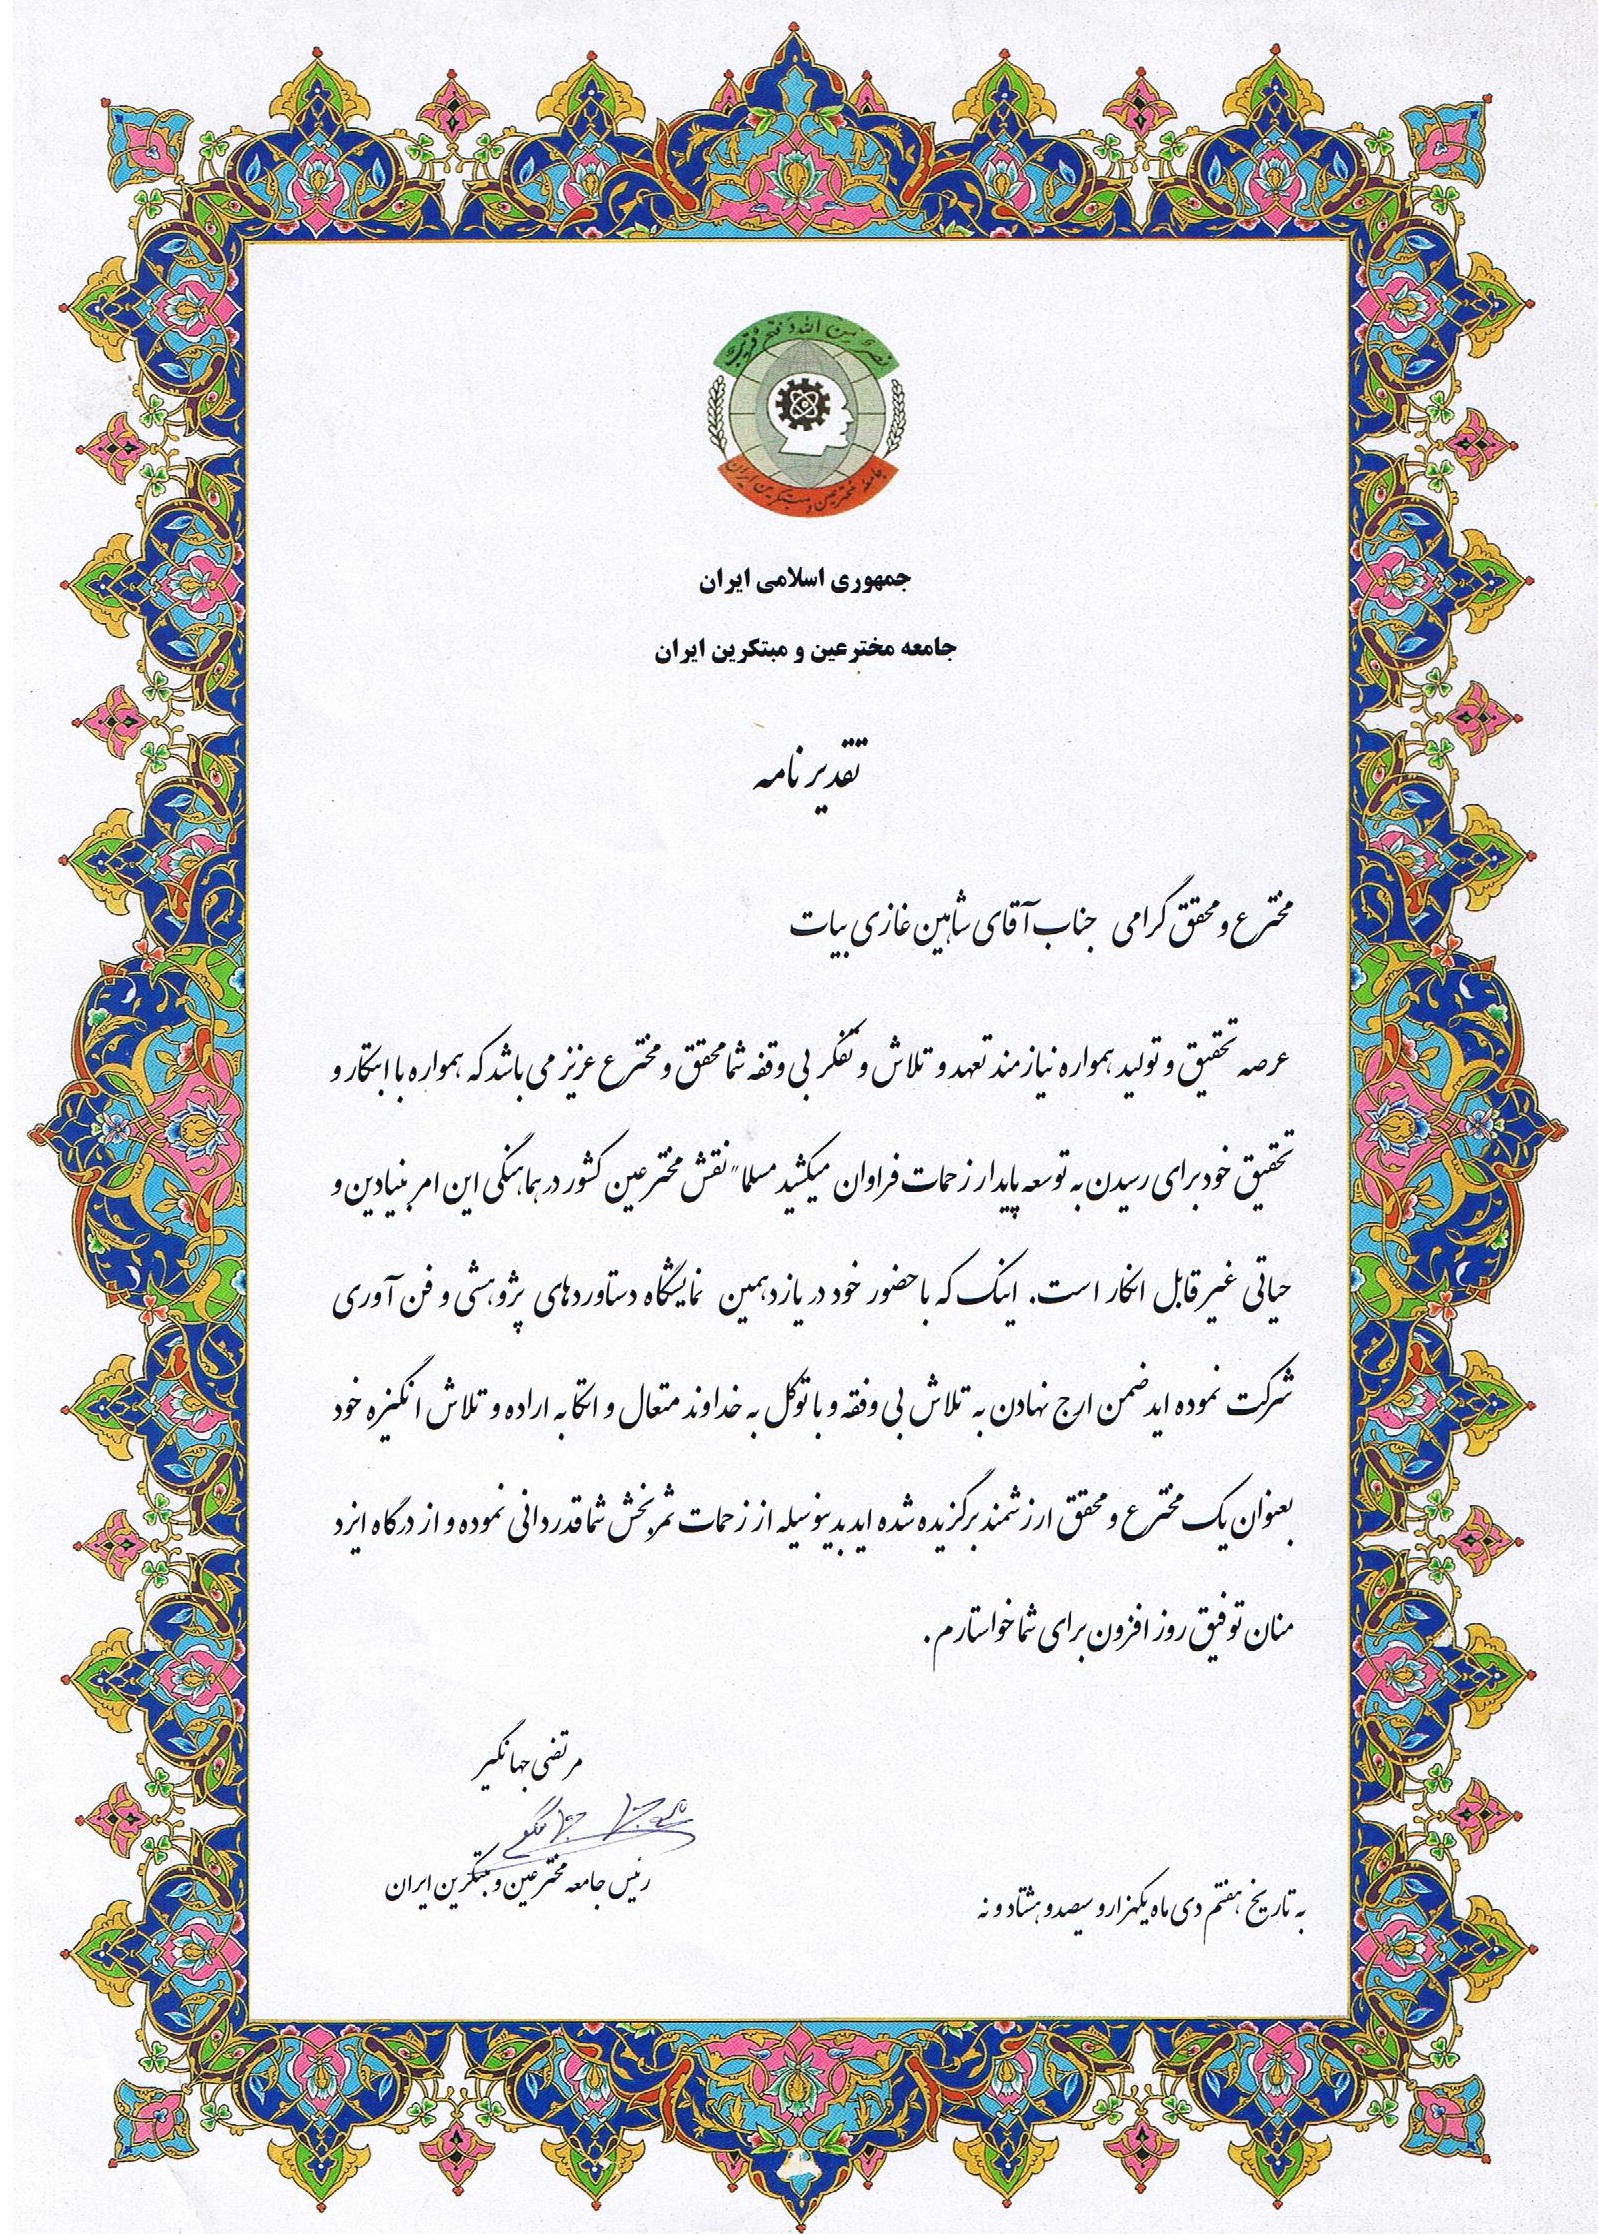 نصر من الله و فتح قریب
جامعه مخترعین و مبتکرین ایران
جمهوری اسلامی ایران
جامعه مخترعین و مبتکرین ایران
تقدیر نامه
مخترع و محقق گرامی جناب آقای شاهین غازی بیات
عرصه تحقیق و تولید همواره نیازمند تعهد و تلاش و تفکر بی وقفه شما محقق و مخترع عزیز می باشد که همواره با ابتکار و
تحقیق خود برای رسیدن به توسعه پایدار زحمات فراوان میکشید مسلما" نقش مخترعین کشور در هماهنگی این امر بنیادین و
حیاتی غیر قابل انکار است. اینک که با حضور خود در یازدهمین نمایشگاه دستاوردهای پژوهشی و فن آوری
شرکت نموده اید ضمن ارج نهادن به تلاش بی وقفه و با توکل به خداوند متعال و اتکا به اراده و تلاش انگیزه خود
بعنوان یک مخترع و محقق ارزشمند برگزیده شده اید بدینوسیله از زحمات ثمربخش شما قدردانی نموده و از درگاه ایزد
منان توفیق روز افزون برای شما خواستارم.
مرتضی جهانگیر
رئیس جامعه مخترعین و مبتکرین ایران
به تاریخ هفتم دی ماه یکهزار و سیصد و هشتاد و نه